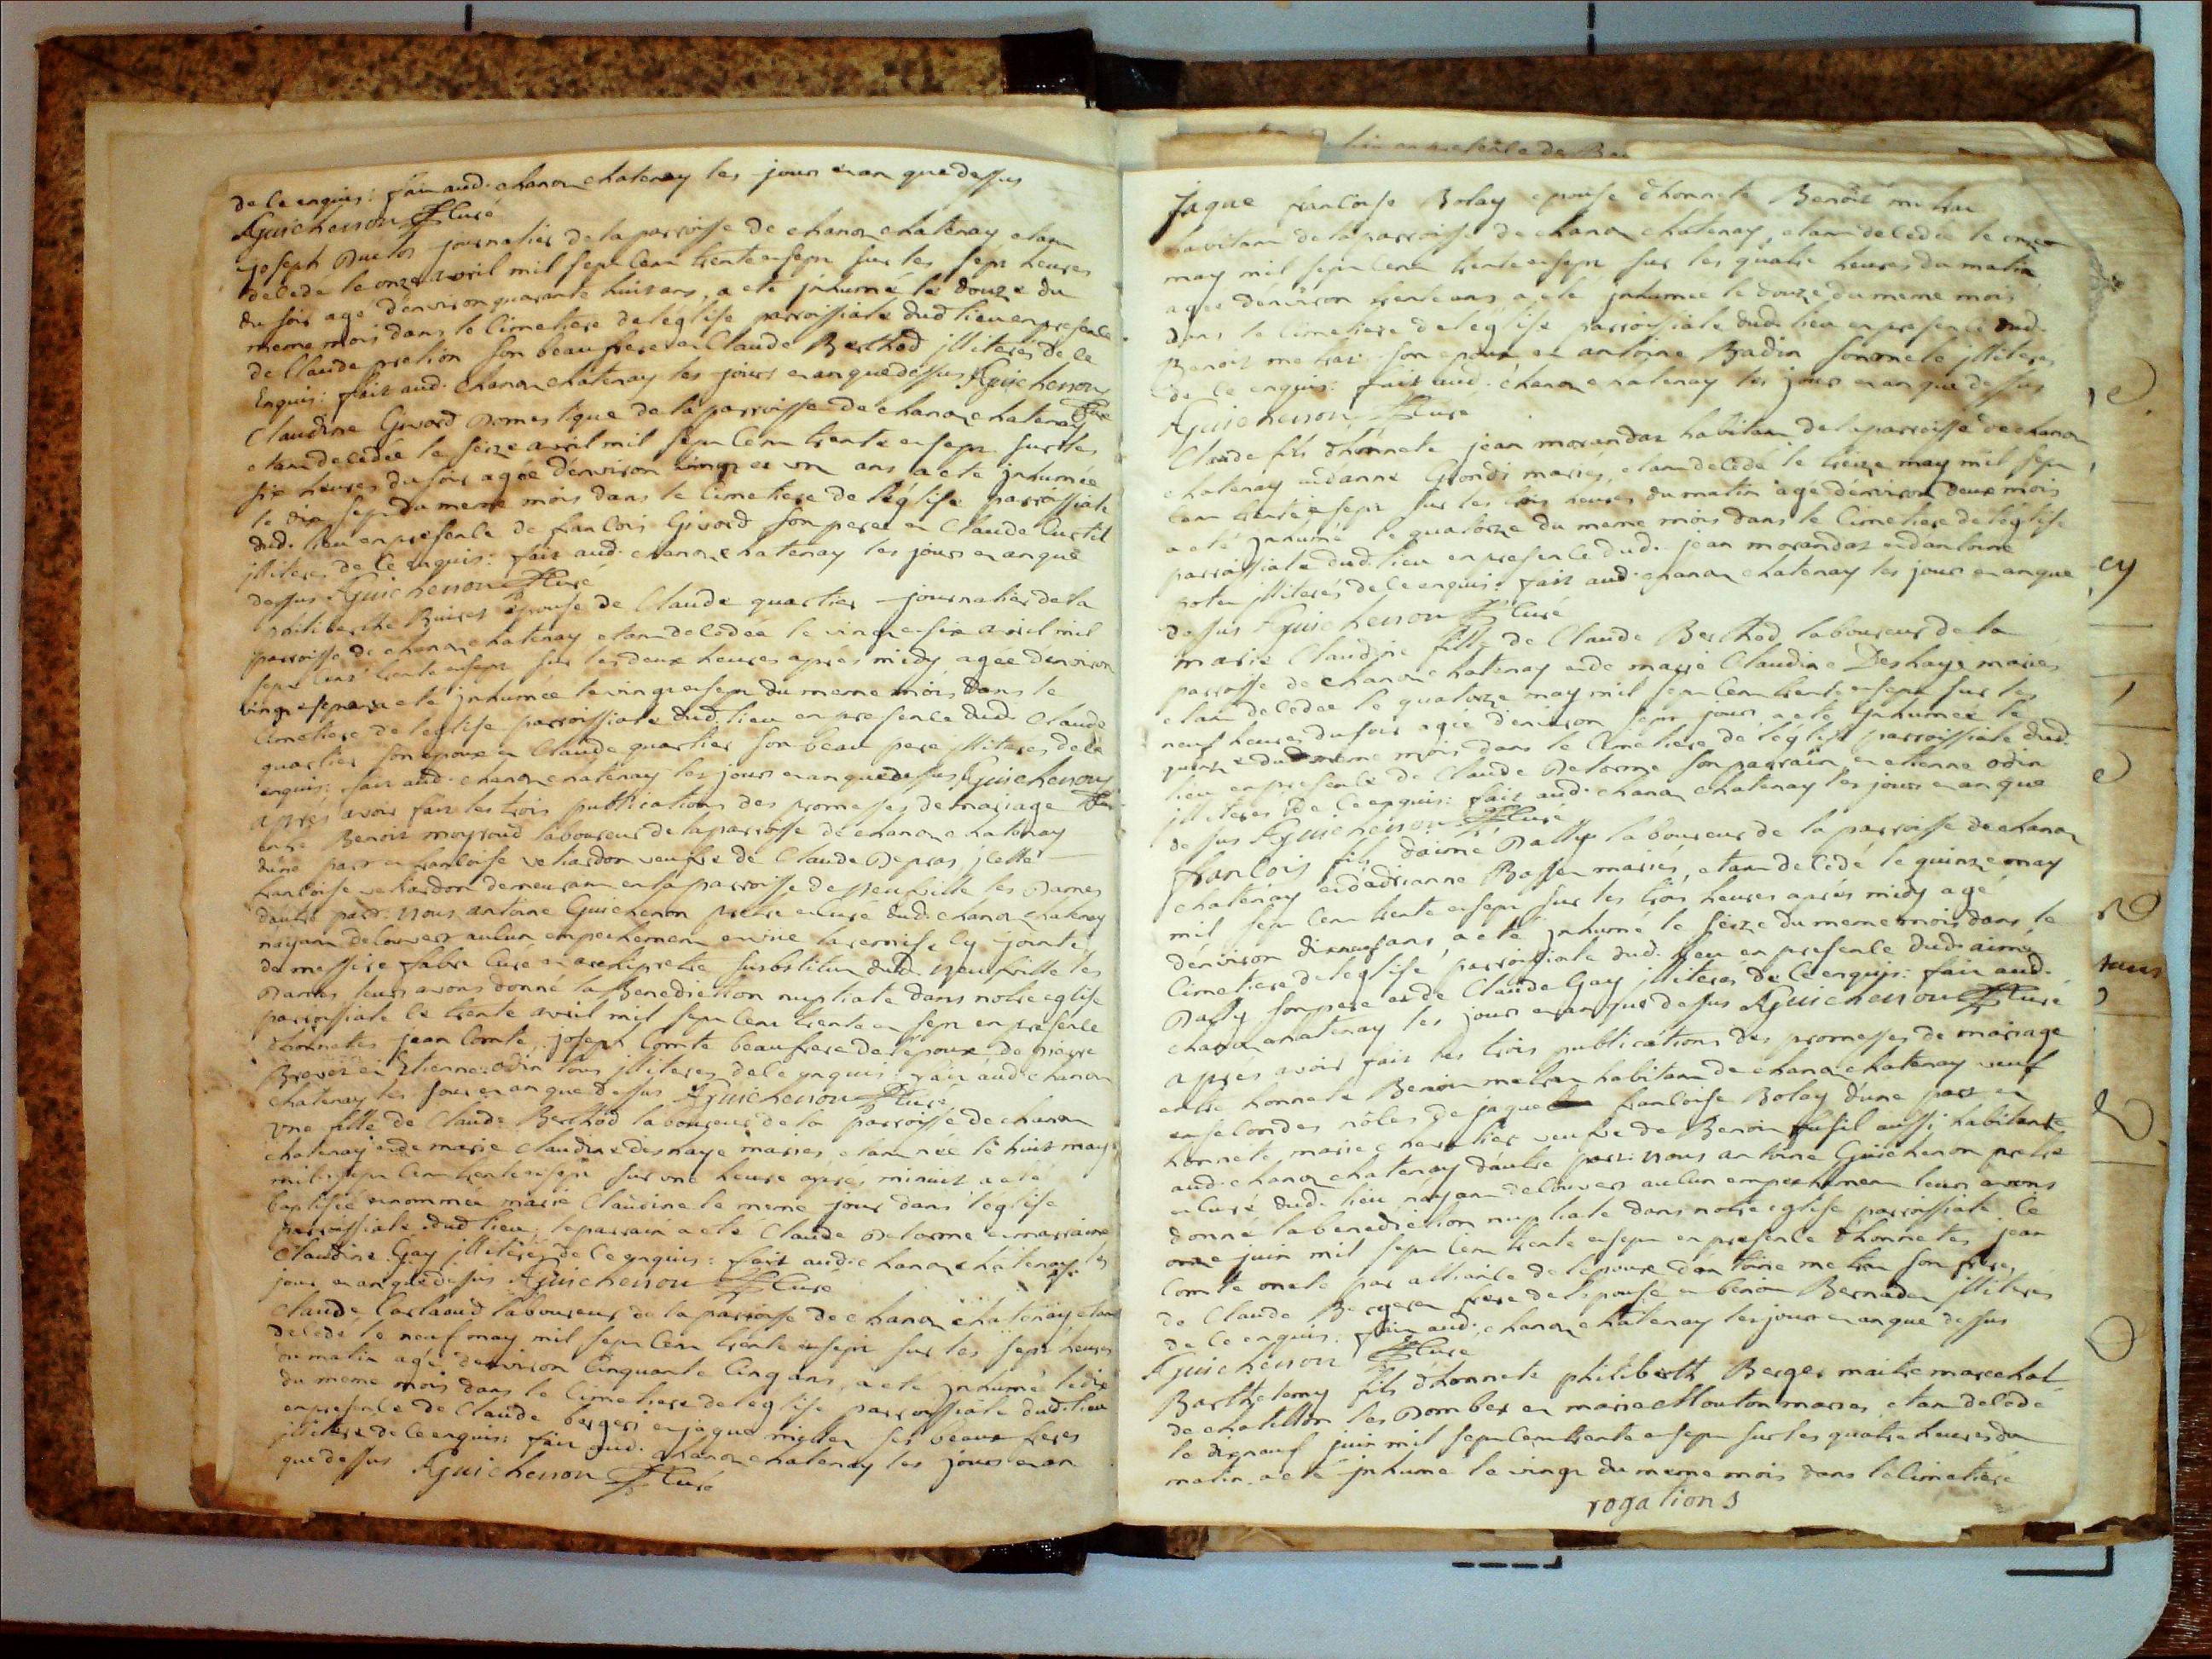 de ce enquis: fait aud. chanoz chatenay les jour et an que dessus
AGuichenon Curé
joseph Duclos journalier de la parroisse de chanoz chatenay etant
decede le onze avril mil sept cent trente et sept sur les sept heures
du soir agé d'environ quarante huit ans, a eté jnhumé le douze du
meme mois dans le Cimetiere de l'église parroissiale dud lieu en presence
de Claude son beau frere et Claude Berthod jlliterés de ce
Enquis: fait aud. Chanoz chatenay les jours et an que dessus AGuichenon
Curé
Claudine Givord Domestique de la parroisse de chanoz chatenay
etant decedée le seize avril mil sept Cent trente et sept sur les
six heures du soir agée d'environ vingt et un ans a eté jnhumée
le dix sept du meme mois dans le Cimetiere de l'église parroissiale
dud. lieu en presence de francois Givord son pere et Claude Curtil
jlliteres de Ce enquis: fait aud. chanoz chatenay les jours et an que
dessus AGuichenon Curé
philiberthe Buiret epouse de Claude quartier journalier de la
parroisse de chanoz chatenay etant decedée le vingt et six avril mil
sept Cent trente et sept sur les deux heures aprés midy agée d'environ
vingt et sept ans a eté jnhumée le vingt et sept du meme mois dans le
Cimetiere de l'eglise parroissiale dud. lieu en presence dud. Claude
quartier son epoux et Claude quartier son beau pere jlliterés de ce
enquis: fait aud. chanoz chatenay les jours et an que dessus AGuichenon
Curé
aprés avoir fait les trois publications des promesses de mariage
entre Benoit moyroud laboureur de la parroisse de chanoz chatenay
d'une part et francoise vetiardon veufve de Claude Depras jcelle
francoise vetiardon demeurant en la parroisse de neufville les Dames
d'autre part: nous antoine Guichenon pretre et Curé dud. chanoz chatenay
nayant decouvert aucun empechement et vue la remise cy jointe
de messire fabre Curé et archipretre substitut dud. neufville les
Dames leurs avons donné la Benediction nuptiale dans notre eglise
parroissiale ce trente avril mil sept Cent trente et sept en presence
d'honnetes jean Comte, joseph Comte beaufrere de l'epoux, de pierre
Brevet et Etienne odin tous jlliteres de ce ynquis: fait aud chanoz
chatenay les jour et an que dessus AGuichenon Curé
une fille de Claude Berthod laboureur de la parroisse de chanoz
chatenay et de marie claudine deshaye mariés, etant née le huit may
mil sept cent trente et sept sur une heure aprés minuit a eté
baptisée et nommée marie Claudine le meme jour dans l'église
parroissiale dud lieu; le parrain a eté Claude Delorme et marraine
Claudine Gay jlliterés de Ce ynquis: fait aud chanoz chatenay les
jour et an que dessus AGuichenon Curé
Claude Carlaoud laboureur de la parroisse de chanoz chatenay etant
decedé le neuf may mil sept Cent trente et sept sur les sept heures
du matin agé d'environ Cinquante Cinq ans, a eté jnhumé le dix
du meme mois dans le Cimetiere de l'eglise parroissiale dud. lieu
en presence de Claude berger et jaque millet ses beaux freres
jlliteré de ce enquis: fait aud. chanoz chatenay les jours et an
que dessus AGuichenon Curé
Jaque francoise Bolay epouse d'honnete Benoit metras
habitant de la parroisse de chanoz chatenay, etant decedée le onze
may mil sept Cent trente et sept sur les quatre heures du matin
agée d'environ trente ans a eté jnhumée le douze du meme mois
dans le Cimetiere de l'église parroissiale dud. lieu en presence dud.
Benoit metras son epoux et antoine Badin jlliteres
de Ce enquis: fait aud. chanoz chatenay les jours et an que dessus
AGuichenon Curé
Claude fils d'honnete jean morandat habitant de la parroisse de chanoz
chatenay et d'anne Grondi mariés, etant decedé le treize may mil sept
Cent trente et sept sur les trois heures du matin agé d'environ deux mois
a eté jnhumé le quatorze du meme mois dans le Cimetiere de l'église
parroissiale dud. lieu en presence dud. jean morandat et d'antoine
potet jlliterés de ce enquis: fait aud. chanoz chatenay les jours et an que
dessus AGuichenon Curé
marie Claudine fille de Claude Berthod laboureur de la
parroisse de chanoz chatenay et de marie Claudine Deshaye mariés
etant decedée le quatorze may mil sept Cent trente et sept sur les
neuf heures du soir agée d'environ sept jours, a eté jnhumée le
quinze dud meme mois dans le Cimetiere de l'église parroissiale dud.
lieu en presence de Claude Delorme son parrain, et etienne odin
jlliteres de Ce enquis: fait aud. chanoz chatenay les jours et an que
dessus AGuichenon Curé
francois fils d'aimé Dally laboureur de la parroisse de chanoz
chatenay et d'adrianne Basset mariés, etant decedé le quinze may
mil sept Cent trente et sept sur les trois heures aprés midy agé
d'environ dixneuf ans, a eté jnhumé le seize du meme mois dans le
Cimetiere de l'eglise parroissiale dud. lieu en presence dud. aimé
Dally son pere et de Claude Gay jlliterés de Ce enquis: fait aud.
chanoz chatenay les jours et an que dessus AGuichenon Curé
apres avoir fait les trois publications des promesses de mariage
entre honnete Benoit metras habitant de chanoz chatenay veuf
en secondes nôces de jaque francoise Bolay d'une part et
honnete marie veufve de Benoit fusil aussi habitante
aud. chanoz chatenay d'autre part: nous antoine Guichenon pretre
et Curé dud. lieu nayant decouvert aucun empechement leurs avons
donné la benediction nuptiale dans notre eglise parroissiale Ce
onze juin mil sept Cent trente et sept en presence d'honnetes jean
Comte oncle par alliance de l'epoux d'antoine metras son frere,
de Claude Berger frere de l'epouse et benoit Bernadet jlliterés
de Ce enquis. fait aud. chanoz chatenay les jours et an que dessus
AGuichenon Curé
Barthelemy fils d'honnete philiberth Berger maitre marechal
de chatillon les Dombes et marie Mouton mariés, etant decedé
le dixneuf juin mil sept Cent trente et sept sur les quatre heures du
matin a eté jnhumé le vingt du meme mois dans le Cimetiere
rogations